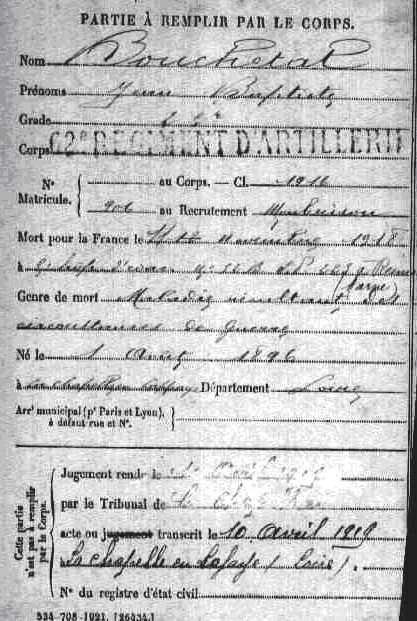 PARTIE À REMPLIR PAR LE CORPS.
Nom Bouchetal
Prénoms Jean Baptiste
Grade 2e
Corps 62e RÉGIMENT D'ARTILLERIE
N° Matricule. { au Corps. — Cl. 1916
906 au Recrutement Montbrison
Mort pour la France le novembre 1918
à Reims (Marne)
Genre de mort Maladie résultant des
circonstances de Guerre
Né le 1 Août 1896
à la chapelle en Lafaye Département Loire
Arr^t municipal (p^r Paris et Lyon), à défaut rue et N°. }
Cette partie n'est pas à remplir par le Corps.
Jugement rendu le
par le Tribunal de
acte ou jugement transcrit le 10 avril 1919
La chapelle en Lafaye (Loire).
N° du registre d'état civil
534-708-1921. [26434.]